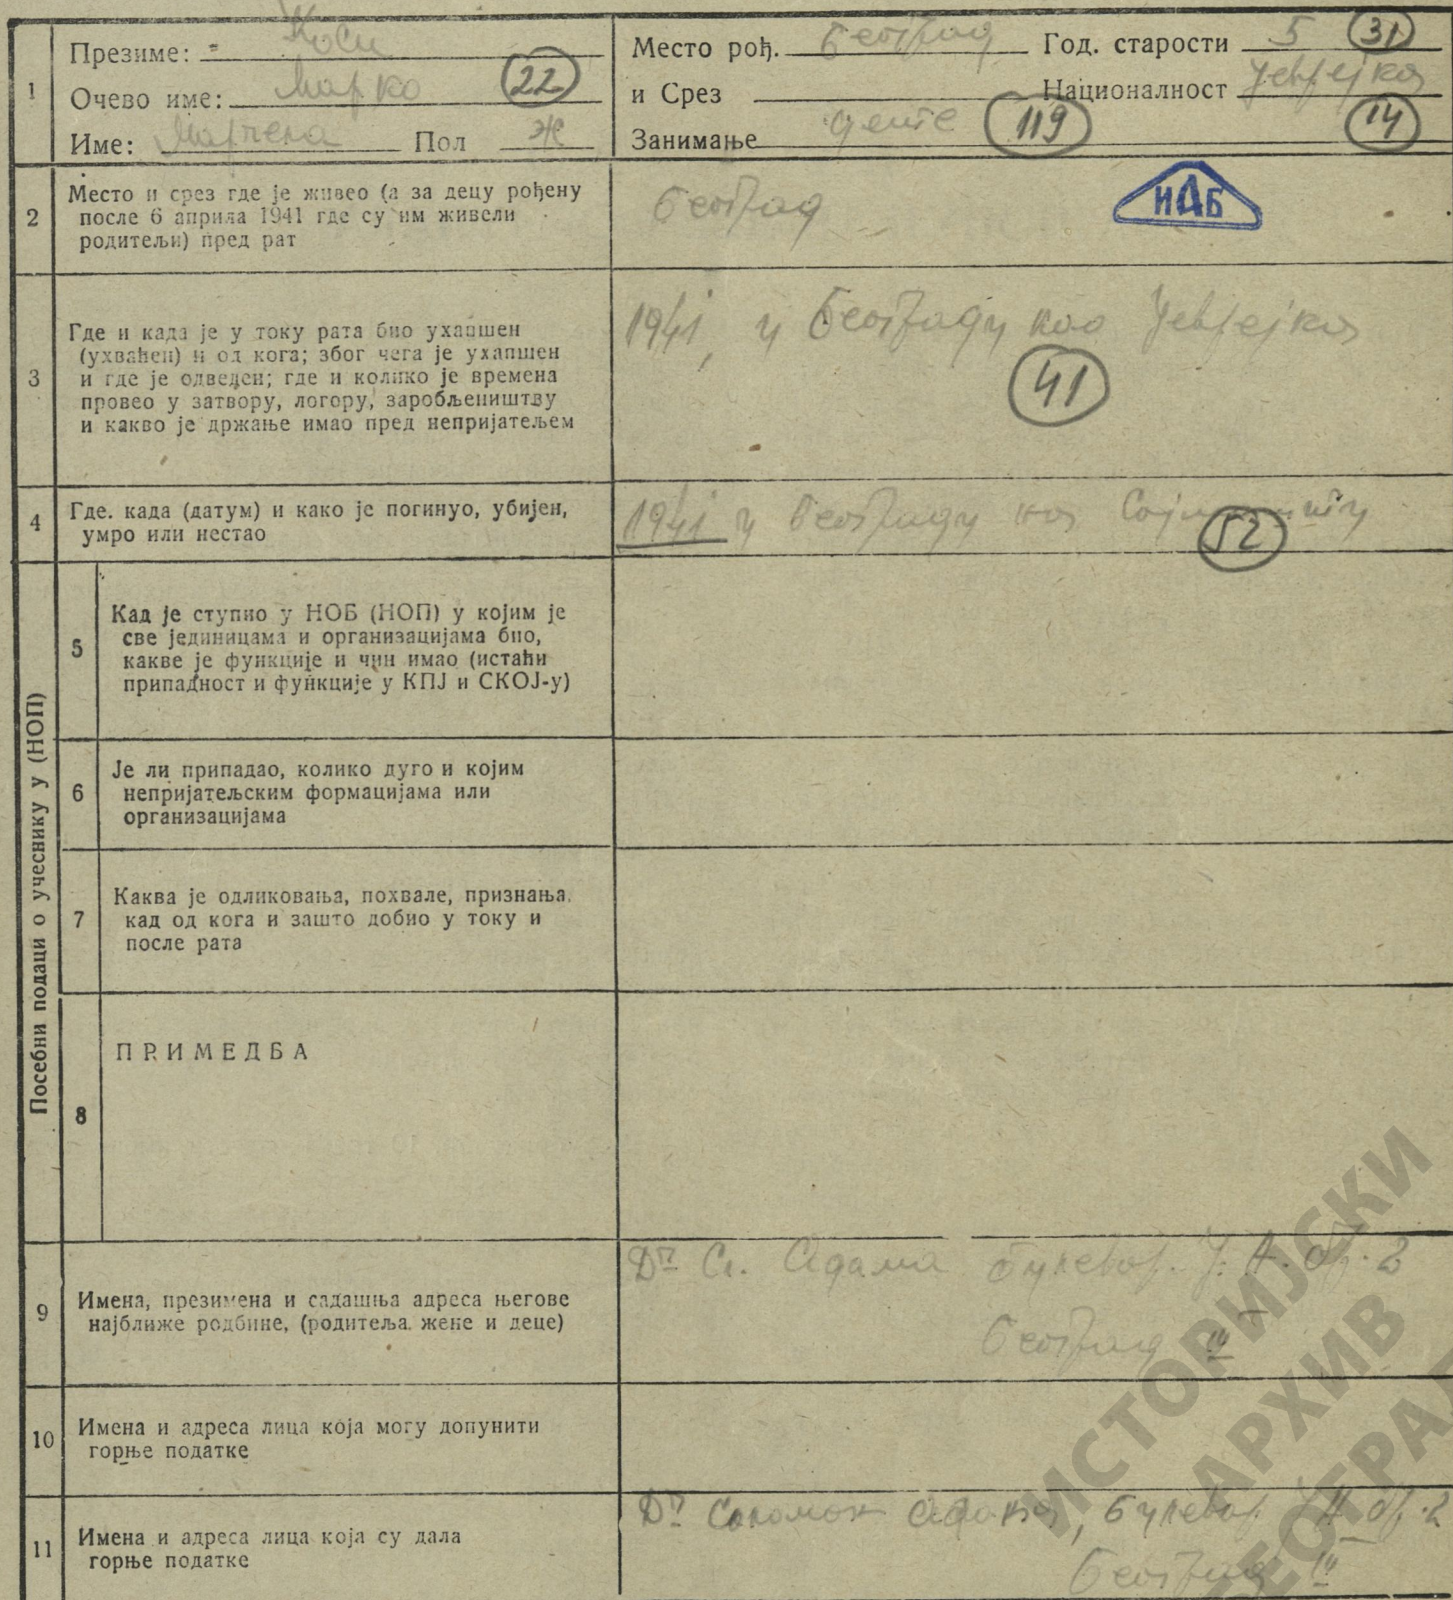 1
Презиме: Коси
Очево име: Марко 22
Име: Пол Ж
Место рођ. Београд Год. старости 5 31
и Срез Националност Јеврејка
Занимање дете 119 14
2
Место и срез где је живео (а за децу рођену
после 6 априла 1941 где су им живели
родитељи) пред рат
Београд
ИАБ
3
Где и када је у току рата био ухапшен
(ухваћен) и од кога; због чега је ухапшен
и где је одведен; где и колико је времена
провео у затвору, логору, заробљеништву
и какво је држање имао пред непријатељем
1941, у Београду као Јеврејка
41
4
Где. када (датум) и како је погинуо, убијен,
умро или нестао
1941 у Београду на Сајмишту
52
Посебни подаци о учеснику у (НОП)
5
Кад је ступио у НОБ (НОП) у којим је
све јединицама и организацијама био,
какве је функције и чин имао (истаћи
припадност и функције у КПЈ и СКОЈ-у)
6
Је ли припадао, колико дуго и којим
непријатељским формацијама или
организацијама
7
Каква је одликовања, похвале, признања,
кад од кога и зашто добио у току и
после рата
8
ПРИМЕДБА
9
Имена, презимена и садашња адреса његове
најближе родбине, (родитеља. жене и деце)
Dr С. Адама булевар. Ј. А. бр. 2
Београд III
10
Имена и адреса лица која могу допунити
горње податке
11
Имена и адреса лица која су дала
горње податке
Dr Соломон Адама, булевар. ЈА бр. 2
Београд III
ИСТОРИЈСКИ
АРХИВ
БЕОГРАД